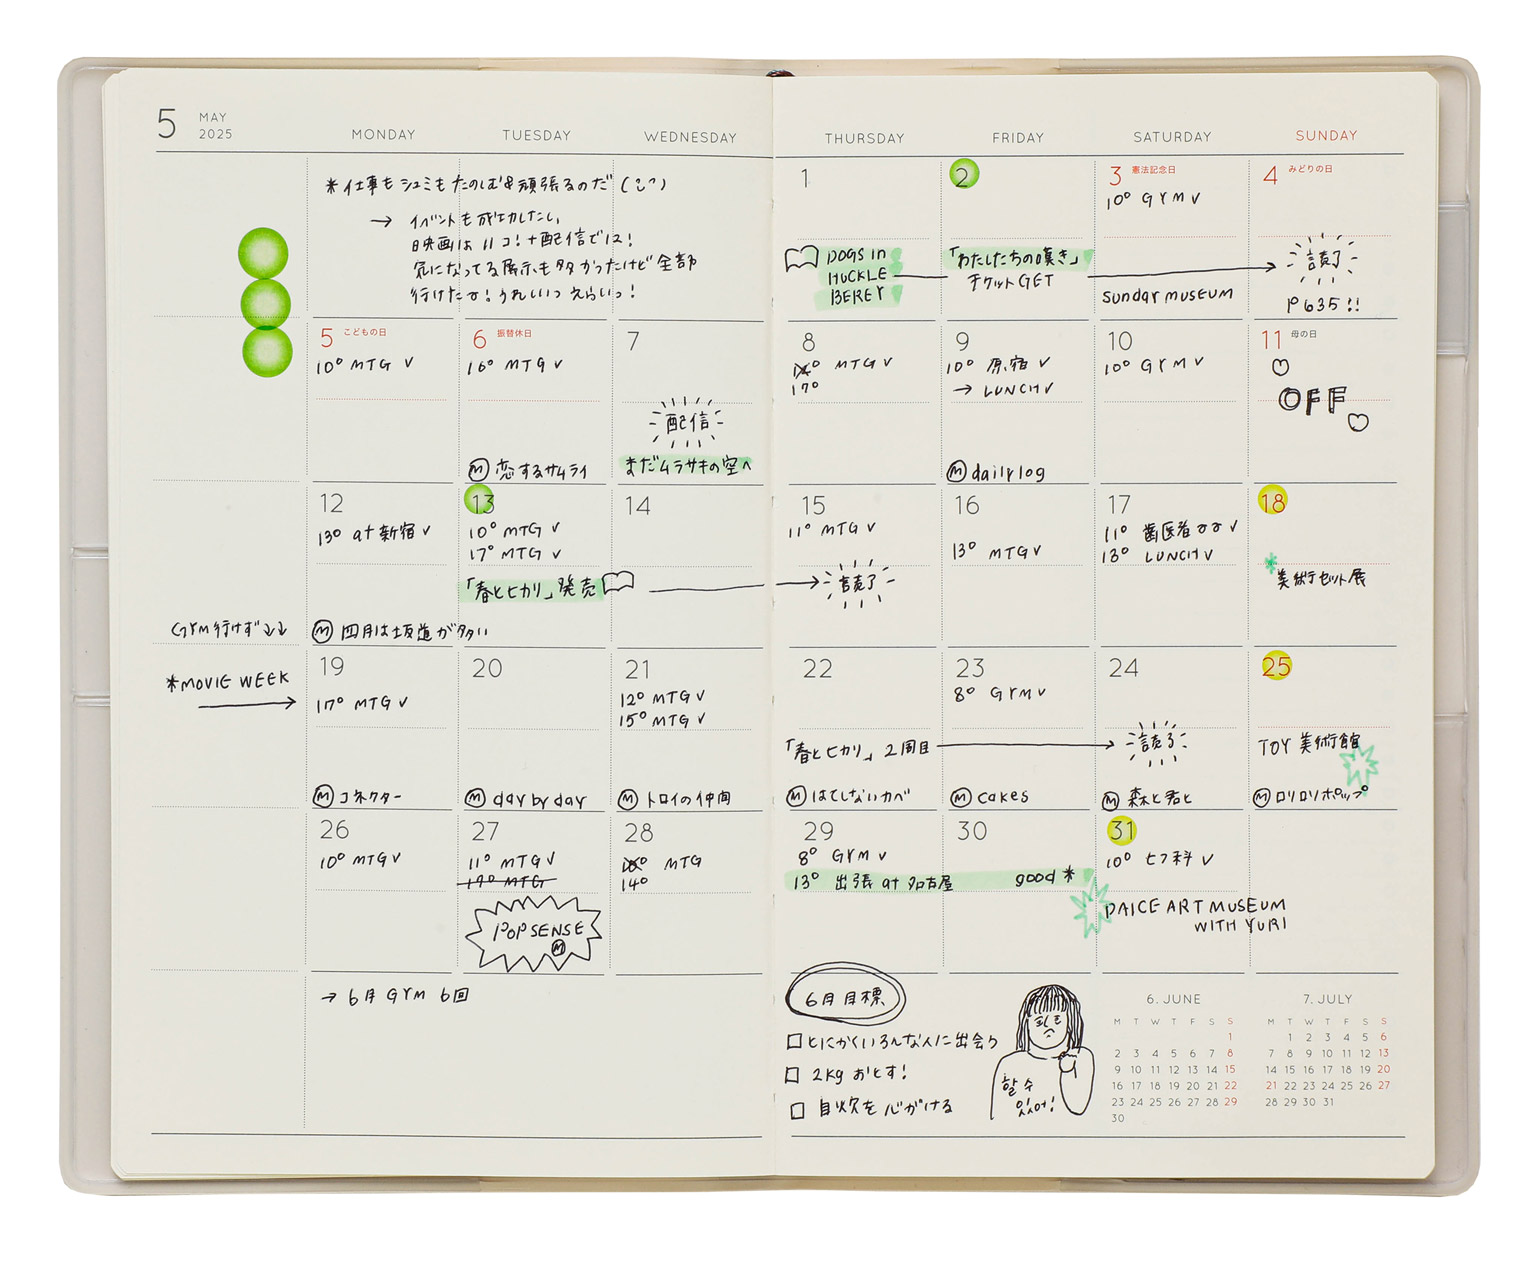 5 MAY
2025
MONDAY TUESDAY WEDNESDAY THURSDAY FRIDAY SATURDAY SUNDAY
*仕事もシュミもたのしば&頑張るのだ
→ イベントも成功したし、
映画は11コ!+配信で12!
気になってる展示も多かったけど全部
行けたな!うれしいっ えらいっ!
1
DOGS in
HUCKLE
BEREY
2
「わたしたちの嘆き」
チケットGET
3 憲法記念日
10° GYM ✓
Sunday MUSEUM
4 みどりの日
読了
P635!!
5 こどもの日
10° MTG ✓
6 振替休日
16° MTG ✓
Ⓜ 恋するサムライ
7
配信
まだムラサキの空へ
8
MTG ✓
17°
9
10° 原宿 ✓
→ LUNCH ✓
Ⓜ dailylog
10
10° GYM ✓
11 母の日
♡
OFF ♡
GYM行けず↓↓
12
13° at 新宿 ✓
Ⓜ 四月は坂道が多い
13
10° MTG ✓
17° MTG ✓
「春とヒカリ」発売
14
15
11° MTG ✓
読了
16
13° MTG ✓
17
11° 歯医者 ✓
13° LUNCH ✓
18
*美術セット展
*MOVIE WEEK
→
19
17° MTG ✓
Ⓜ コネクター
20
Ⓜ day by day
21
12° MTG ✓
15° MTG ✓
Ⓜ トロイの仲間
22
「春とヒカリ」2周目
Ⓜ はてしないカベ
23
8° GYM ✓
Ⓜ cakes
24
読了
Ⓜ 森と君と
25
TOY 美術館
Ⓜ ロリロリポップ
26
10° MTG ✓
27
11° MTG ✓
17° MTG
POP SENSE
Ⓜ
28
MTG
14°
29
8° GYM ✓
13° 出張 at 名古屋
30
good *
31
10° ヒフ科 ✓
PAICE ART MUSEUM
WITH YURI
→ 6月 GYM 6回
6月目標
□ とにかくいろんな人に出会う
□ 2kg おとす!
□ 自炊を心がける
할 수
있어!
6. JUNE
M T W T F S S
1
2 3 4 5 6 7 8
9 10 11 12 13 14 15
16 17 18 19 20 21 22
23 24 25 26 27 28 29
30
7. JULY
M T W T F S S
1 2 3 4 5 6
7 8 9 10 11 12 13
14 15 16 17 18 19 20
21 22 23 24 25 26 27
28 29 30 31